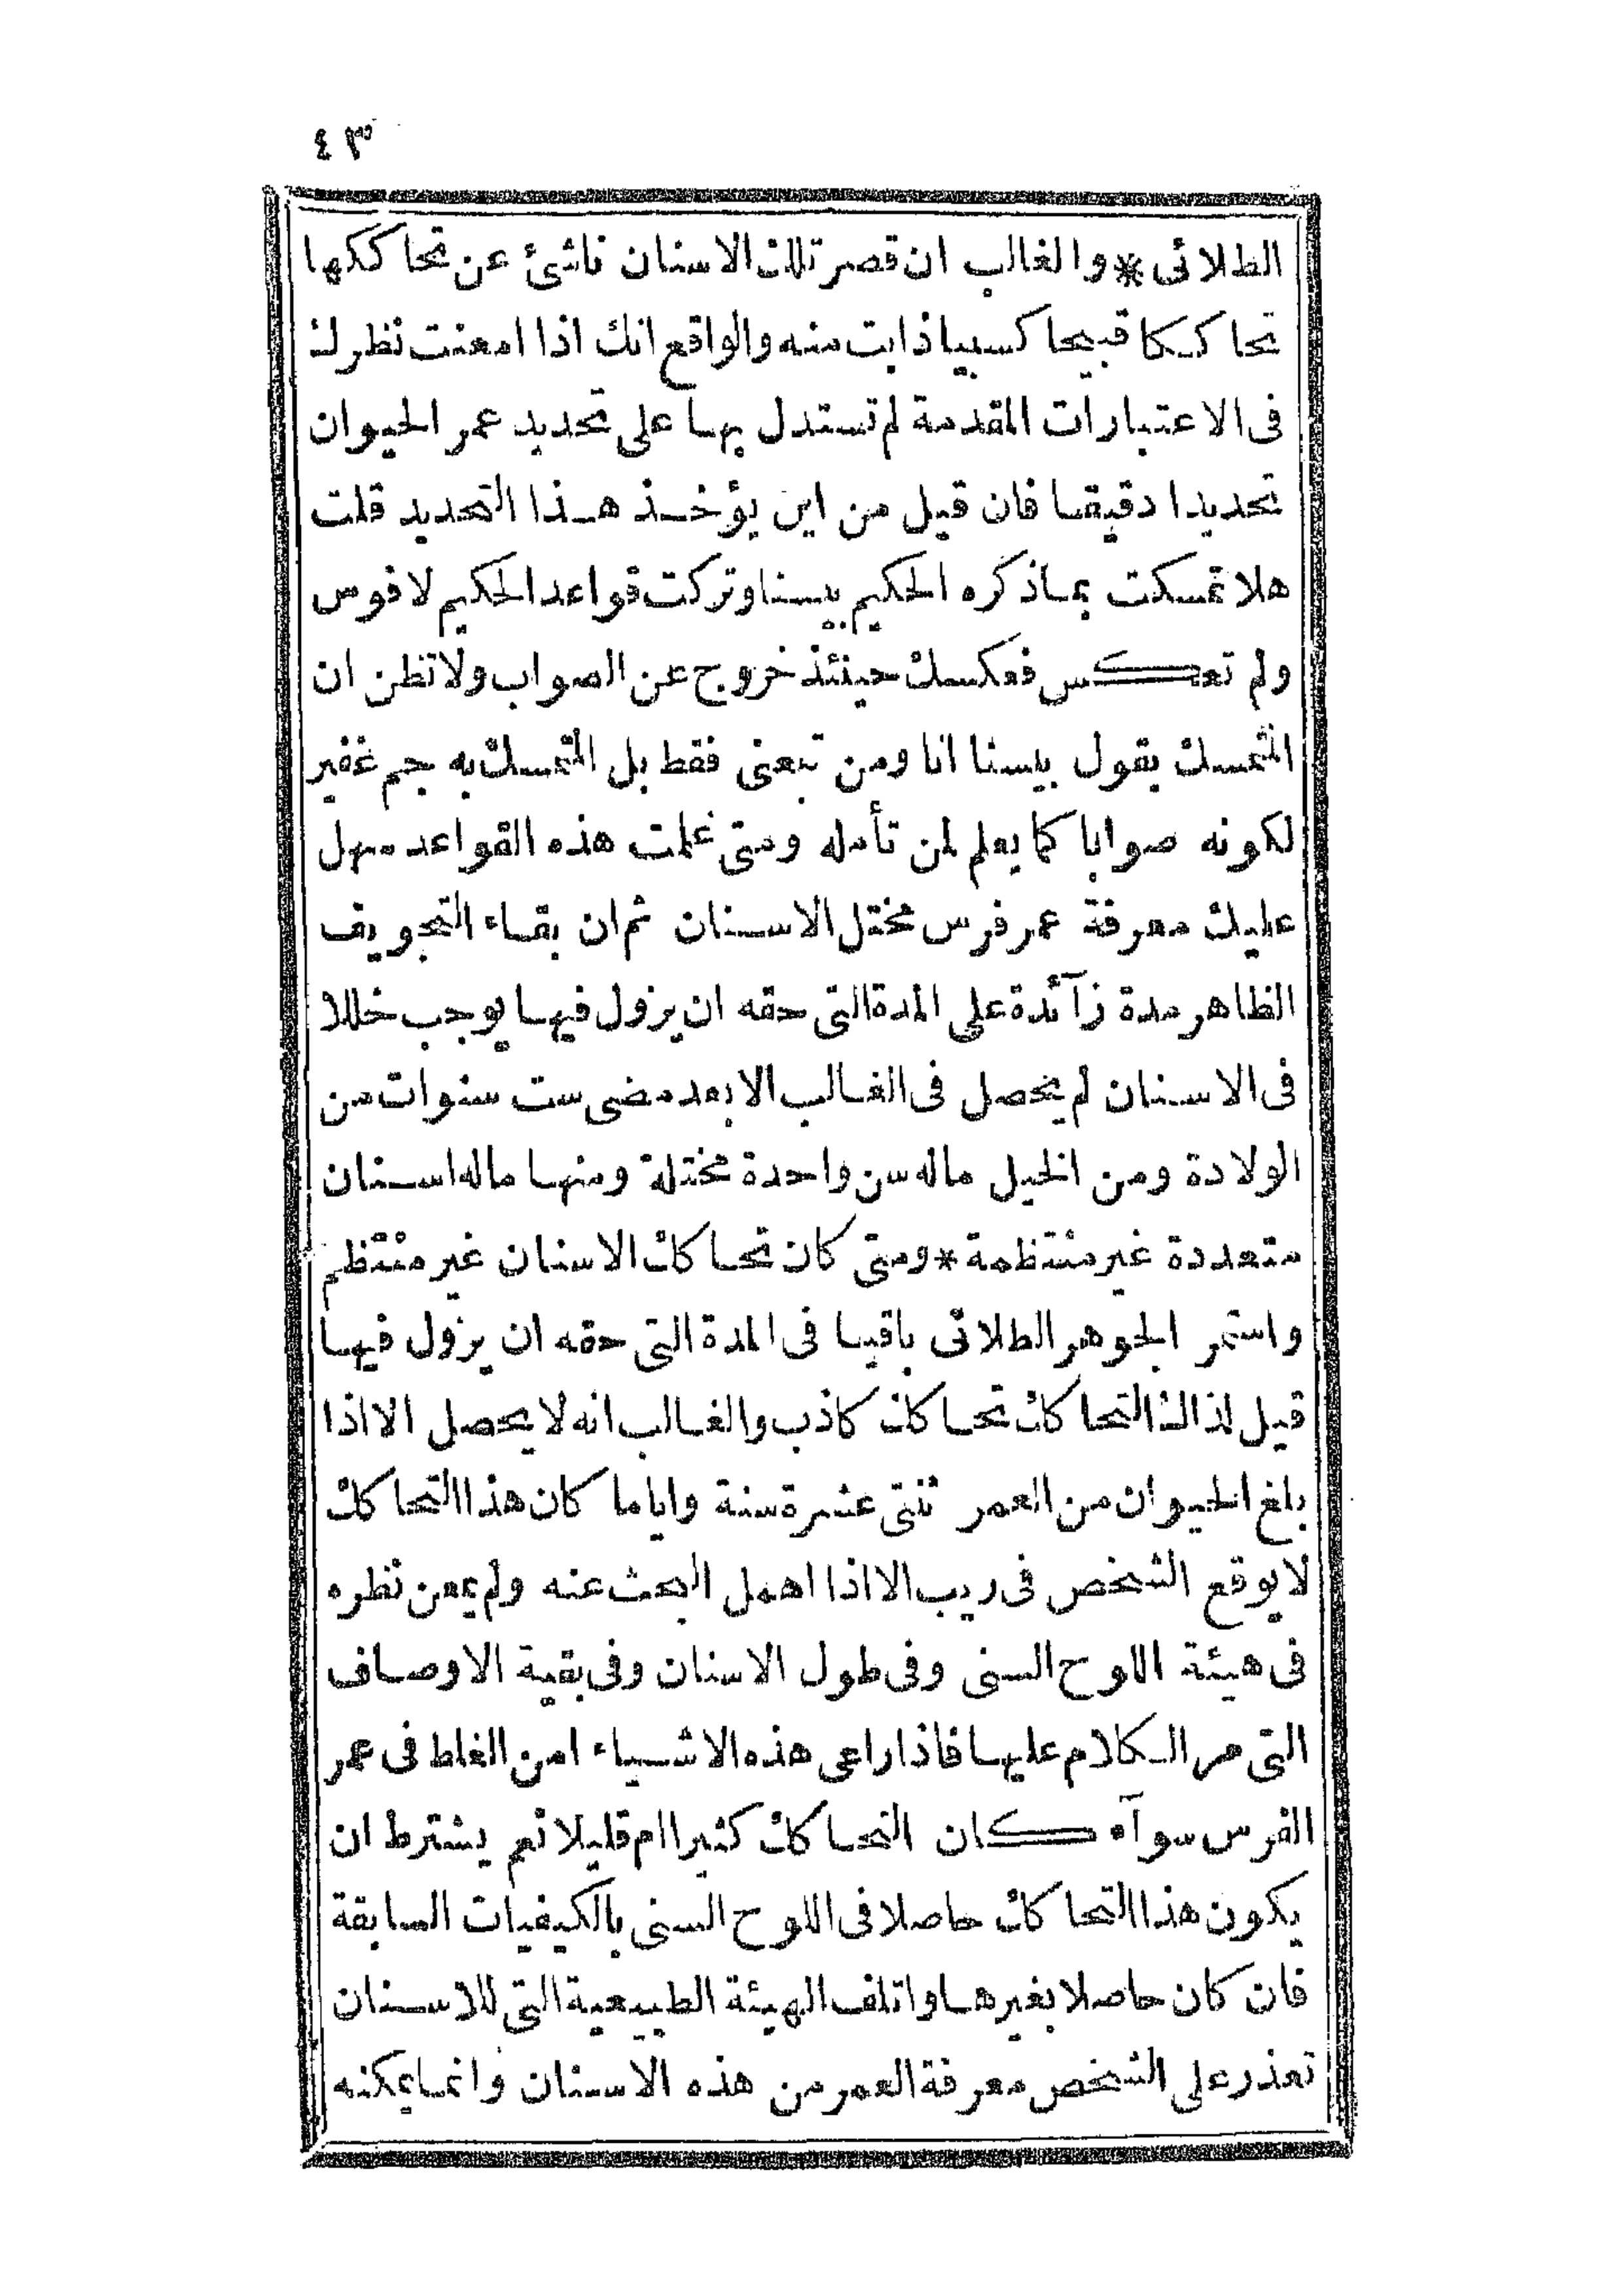 ٤٣
الطلائى * والغالب ان قصر تلك الاسنان ناشئ عن تحاككها
تحاككا قبيحا كسبيا ذابت منه والواقع انك اذا امعنت نظرك
فى الاعتبارات المقدمة لم تستدل بها على تحديد عمر الحيوان
تحديدا دقيقا فان قيل من اين يؤخذ هذا التحديد قلت
هلا تمسكت بما ذكره الحكيم بيسنا وتركت قواعد الحكيم لافوس
ولم تعكس فعكسك حينئذ خروج عن الصواب ولا تظن ان
المتمسك بقول بيسنا انا ومن تبعنى فقط بل المتمسك به جم غفير
لكونه صوابا كما يعلم لمن تأمله ومتى علمت هذه القواعد سهل
عليك معرفة عمر فرس مختل الاسنان ثم ان بقاء التجويف
الظاهر مدة زآئدة على المدة التى حقه ان يزول فيها يوجب خللا
فى الاسنان لم يحصل فى الغالب الا بعد مضى ست سنوات من
الولادة ومن الخيل ماله سن واحدة مختلة ومنها ماله اسنان
متعددة غير منتظمة * ومتى كان تحاكك الاسنان غير منتظم
واستمر الجوهر الطلائى باقيا فى المدة التى حقه ان يزول فيها
قيل لذالك التحاكك تحاكك كاذب والغالب انه لا يحصل الا اذا
بلغ الحيوان من العمر ثنتى عشرة سنة واياما كان هذا التحاكك
لا يوقع الشخص فى ريب الا اذا اهمل البحث عنه ولم يمعن نظره
فى هيئة اللوح السنى وفى طول الاسنان وفى بقية الاوصاف
التى مر الكلام عليها فاذا راعى هذه الاشياء امن الغلط فى عمر
الفرس سوآء كان التحاكك كثيرا ام قليلا نعم يشترط ان
يكون هذا التحاكك حاصلا فى اللوح السنى بالكيفيات السابقة
فان كان حاصلا بغيرها واتلف الهيئة الطبيعية التى للاسنان
تعذر على الشخص معرفة العمر من هذه الاسنان وانما يمكنه